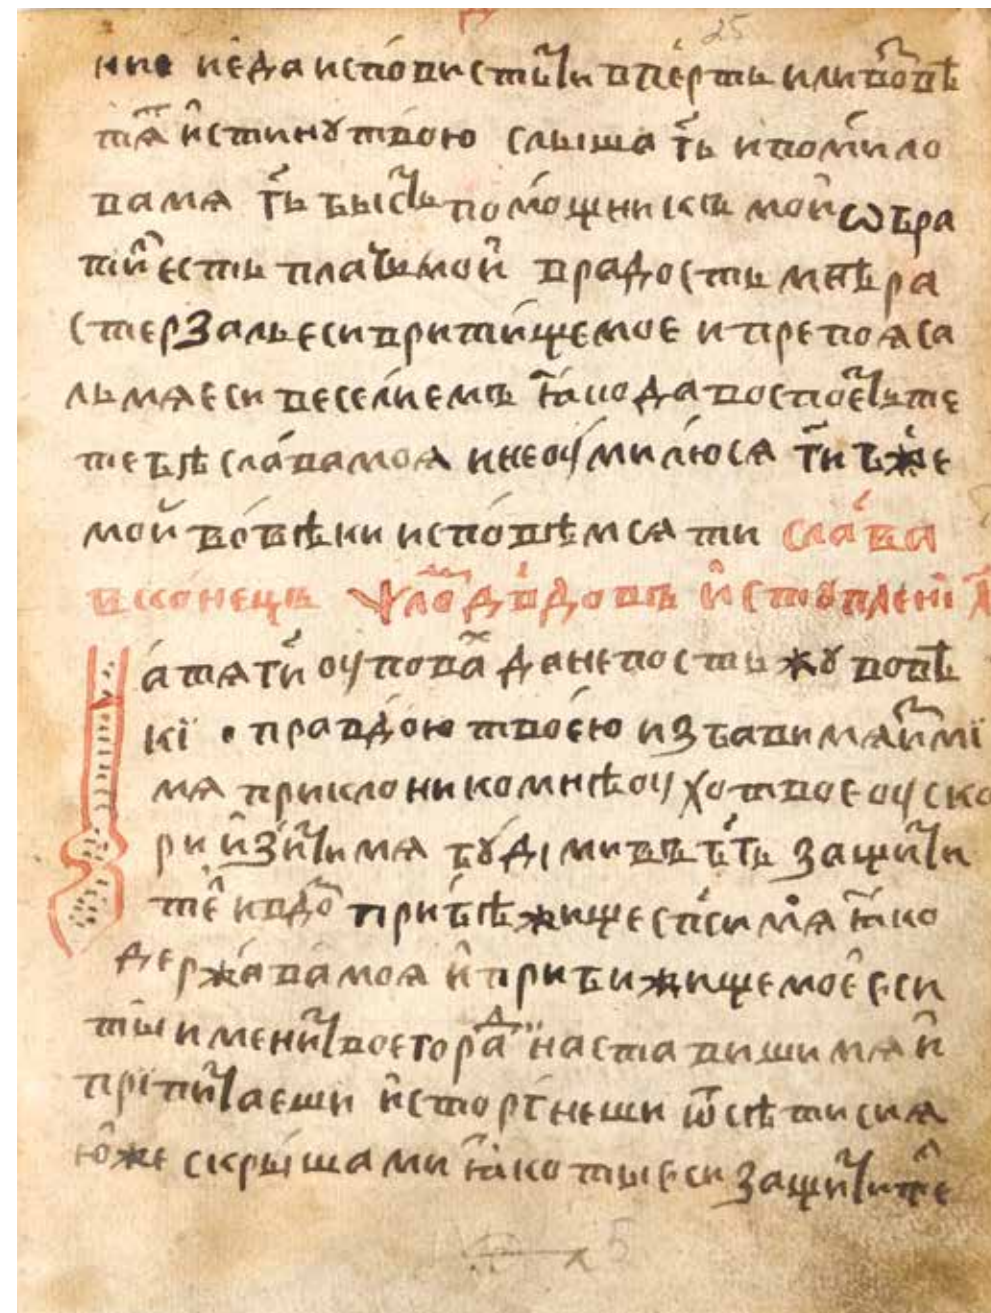 25
ние иеда исповистьти вперть или возвѣ
тиⷮ истинꙋ твою слыша гⷭ҇ь и помило
ва мя гⷭ҇ь бысть помощникъ мой ѡбра
тилъ есть плачь мой в радость мнѣ ра
стерзалъ еси вритище мое и препояса
лъ мя еси веселиемъ ꙗко да воспоетъ те
тебѣ слава моя и не оумилюся гⷭ҇и бж҃е
мой во вѣки исповѣмся ти слава
в конецъ ψало҃ дв҃довъ иступленїѧ
а тя гⷭ҇и оупова да не постыжꙋ во вѣ
кї правдою твоею избави мя и изми
мя приклони ко мнѣ оухо твое оуско
ри изѧти мя бꙋди ми въ бг҃ъ защити
тел и в до прибѣжище спⷭ҇и мѧ ꙗко
держава моя и прибижище мое еси
ты имени твоего рад наставиши мя и
препитаеши исторгнеши ѿ сѣти сия
юже скрыша ми ꙗко ты еси защитите